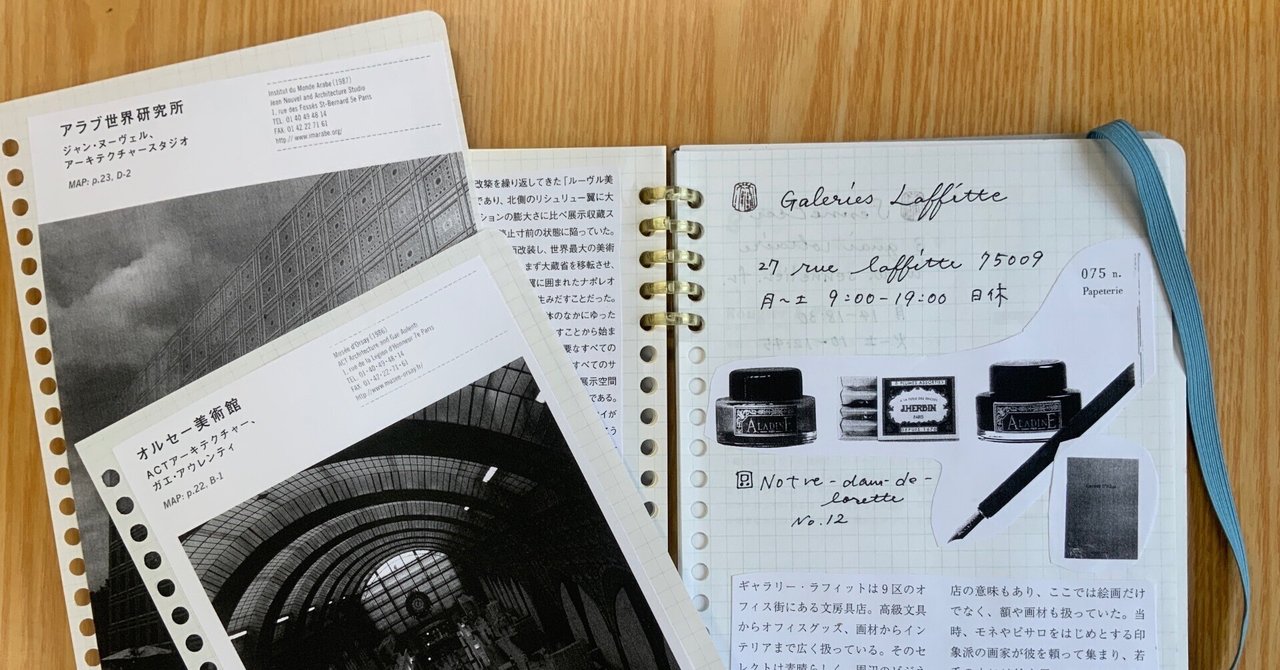 アラブ世界研究所
ジャン・ヌーヴェル、
アーキテクチャースタジオ
MAP: p.23, D-2
Institut du Monde Arabe (1987)
Jean Nouvel and Architecture Studio
1, rue des Fossés St-Bernard 5e Paris
TEL 01 40 49 48 14
FAX 01 42 22 71 61
http:// www.imarabe.org/
オルセー美術館
ACTアーキテクチャー、
ガエ・アウレンティ
MAP: p.22, B-1
Musée d'Orsay (1986)
ACT Architecture and Gae Aulenti
1, rue de la Legion d'Honneur 7e Paris
TEL 01・40・49・48・14
FAX 01・42・22・71・61
http://www.musee-orsay.fr/
改築を繰り返してきた「ルーヴル美
であり、北側のリシュリュー翼に大
ションの膨大さに比べ展示収蔵ス
止寸前の状態に陥っていた。
改装し、世界最大の美術
まず大蔵省を移転させ、
翼に囲まれたナポレオ
生みだすことだった。
体のなかにゆった
すことから始ま
要なすべての
すべてのサ
展示空間
である。
イが
Galeries Laffitte
27 rue laffitte 75009
月〜土 9:00-19:00 日休
075 n.
Papeterie
ALADINE
J.HERBIN
PARIS
DEPUIS 1670
ALADINE
Notre-dam-de-
lorette
No.12
ギャラリー・ラフィットは9区のオ
フィス街にある文房具店。高級文具
からオフィスグッズ、画材からイン
テリアまで広く扱っている。そのセ
レクトは素晴らしく、周辺のビジネ
店の意味もあり、ここでは絵画だけ
でなく、額や画材も扱っていた。当
時、モネやピサロをはじめとする印
象派の画家が彼を頼って集まり、若